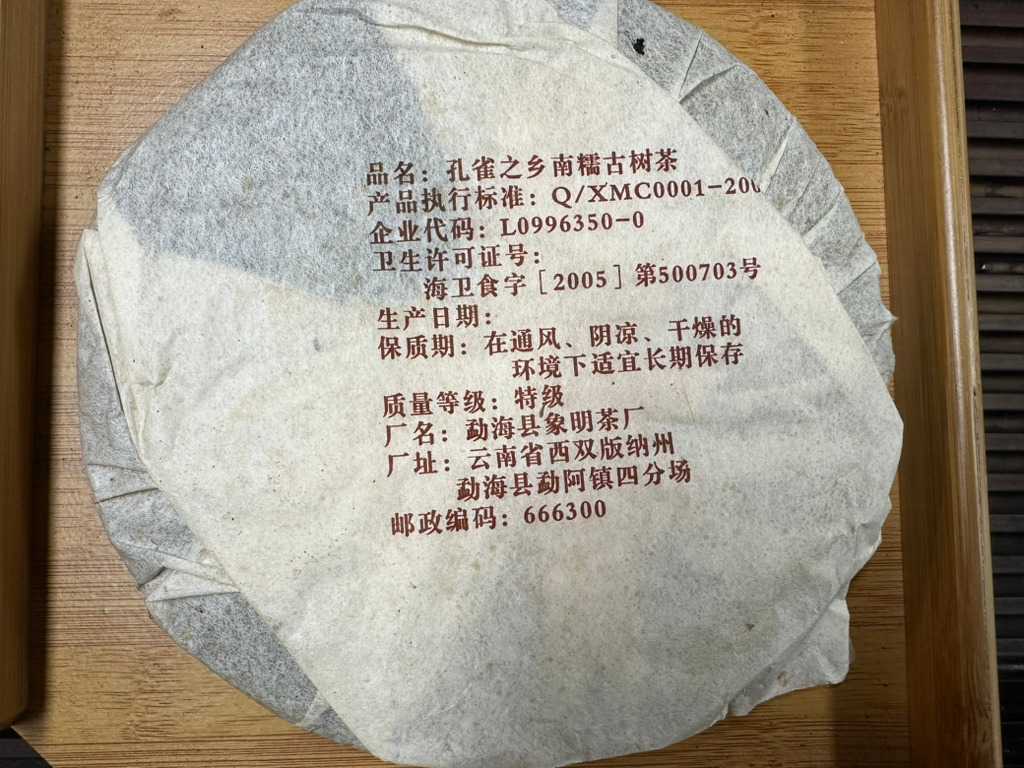 品名：孔雀之乡南糯古树茶
产品执行标准：Q/XMC0001-200
企业代码：L0996350-0
卫生许可证号：
海卫食字［2005］第500703号
生产日期：
保质期：在通风、阴凉、干燥的
环境下适宜长期保存
质量等级：特级
厂名：勐海县象明茶厂
厂址：云南省西双版纳州
勐海县勐阿镇四分场
邮政编码：666300